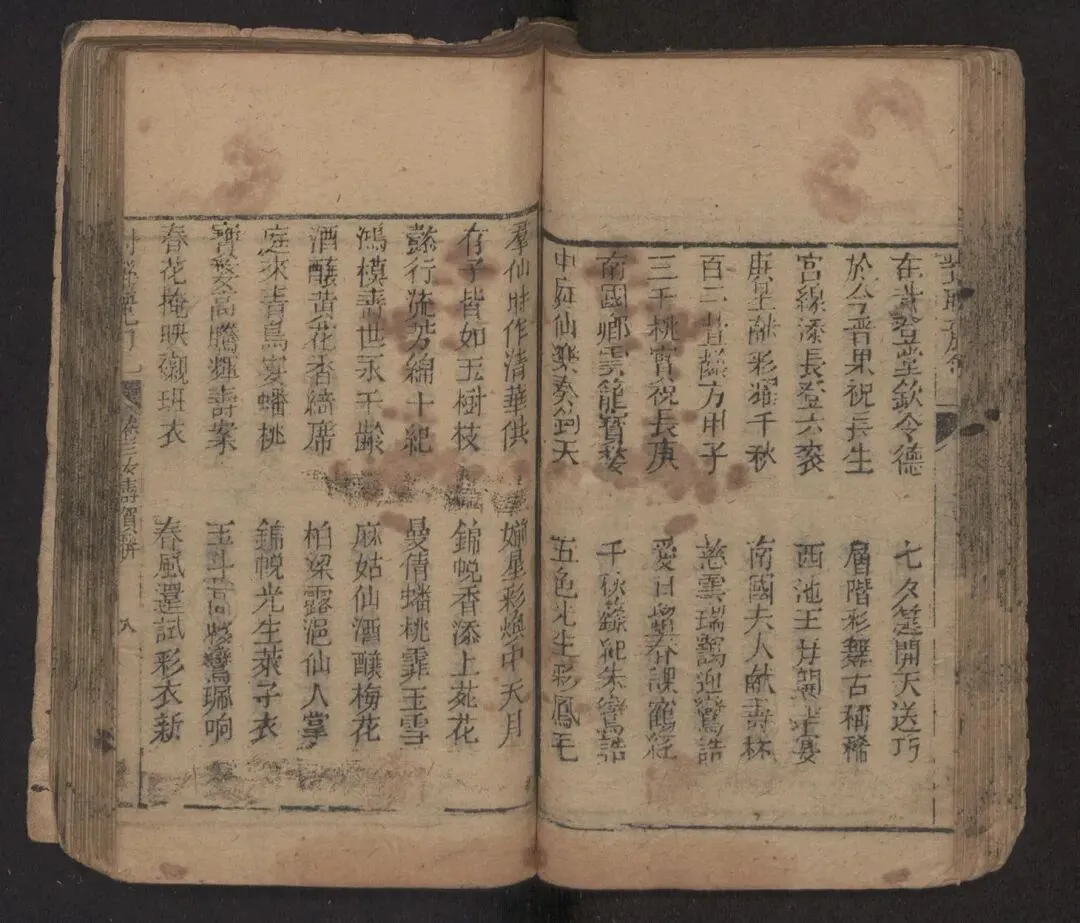 在昔登堂欽令德
七夕筵開天送巧
於今晋果祝長生
層階彩舞古稱稀
宮線添長登六袠
西池王母開筵宴
庚星献彩耀千秋
南國夫人献壽杯
百二萱齡方甲子
慈雲瑞靄迎鸞誥
三千桃實祝長庚
愛日春課鶴經
南國鄉雲籠寶婺
千秋錦帨朱鸞誥
中庭仙樂奏鈞天
五色光生彩鳳毛
羣仙時作清華供
婺星彩煥中天月
有子皆如玉樹枝
錦帨香添上苑花
懿行流芳綿十紀
曼倩蟠桃霏玉雪
鴻模壽世永千齡
麻姑仙酒釀梅花
酒釀黃花香綺席
柏梁露浥仙人掌
庭來青鳥宴蟠桃
錦帨光生萊子衣
寶婺高騰輝壽案
玉斗高鸞珮响
春花掩映襯班衣
春風還試彩衣新
卷三女壽賀聯
八